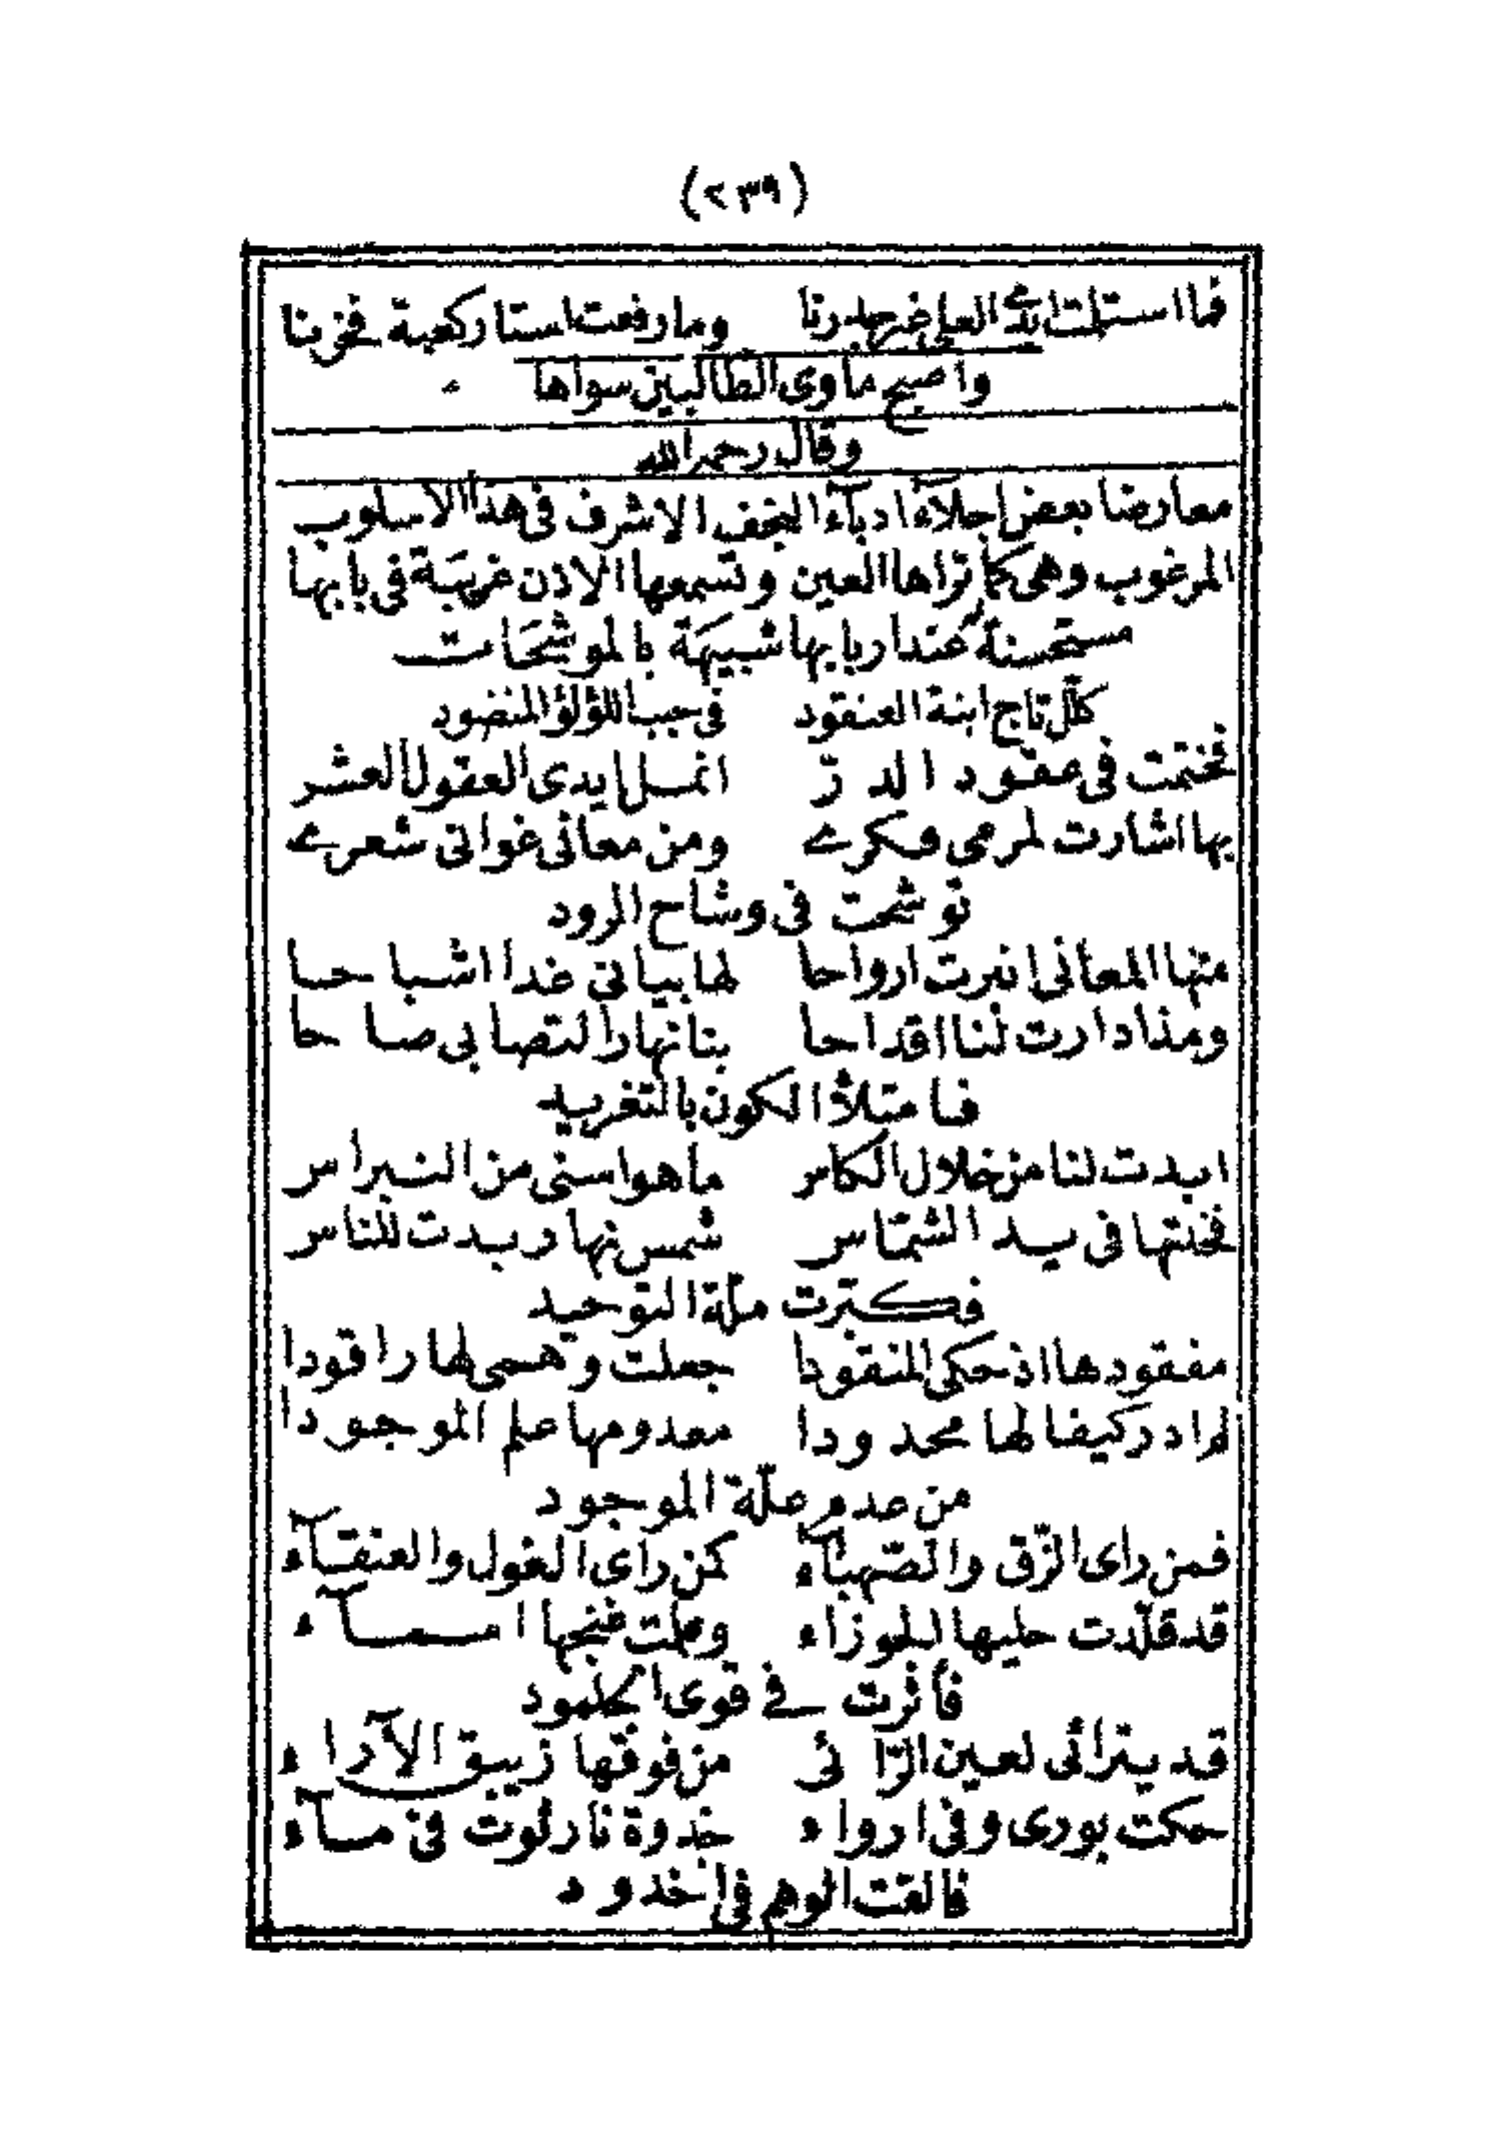 (٢٣٩)
فما استلمت ايدى العلى غير جدرنا وما رفعت استار كعبة فخرنا
واصبح ماوى الطالبين سواها
وقال رحمه الله
معارضا بعض اجلآء ادبآء النجف الاشرف فى هذا الاسلوب
المرغوب وهى كما تراها العين وتسمعها الاذن غريبَة فى بابها
مستحسنة عند اربابها شبيهَة بالموشحَات
كلّل تاج ابنة العنقود فى حبب اللؤلؤ المنضود
فختمت فى عقود الدرّ انمل ايدى العقول العشر
بها اشارت لمرمى فكرے ومن معانى غوانى شعرے
توشحت فى وشاح الرود
منها المعانى انبرت ارواحا لها بيانى غدا اشباحا
ومذ ادارت لنا اقداحا بتا نهار التصابى صاحا
فامتلأ الكون بالتغريد
ابدت لنا من خلال الكاس ما هو اسنى من النبراس
فخلتها فى يد الشمّاس شمس نهار بدت للناس
فكبّرت ملّة التوحيد
مفقودها اذ حكى المنقودا جعلت وهمى لها راقودا
لم ادر كيفا لها محدودا معدومها علم الموجودا
من عدم علّة الموجود
فمن راى الزّق والصّهبآء كمن راى الغول والعنقآء
قد قلّدت حليها الجوزاء وعلمت غنجها اسمآء
فأثرت فى قوى الجلمود
قد يترائى لعين الرّائى من فوقها زيبق الآراء
حكت بورى وفى ارواء جذوة نار لوت فى مآء
فالقت الوهم فى اخدود